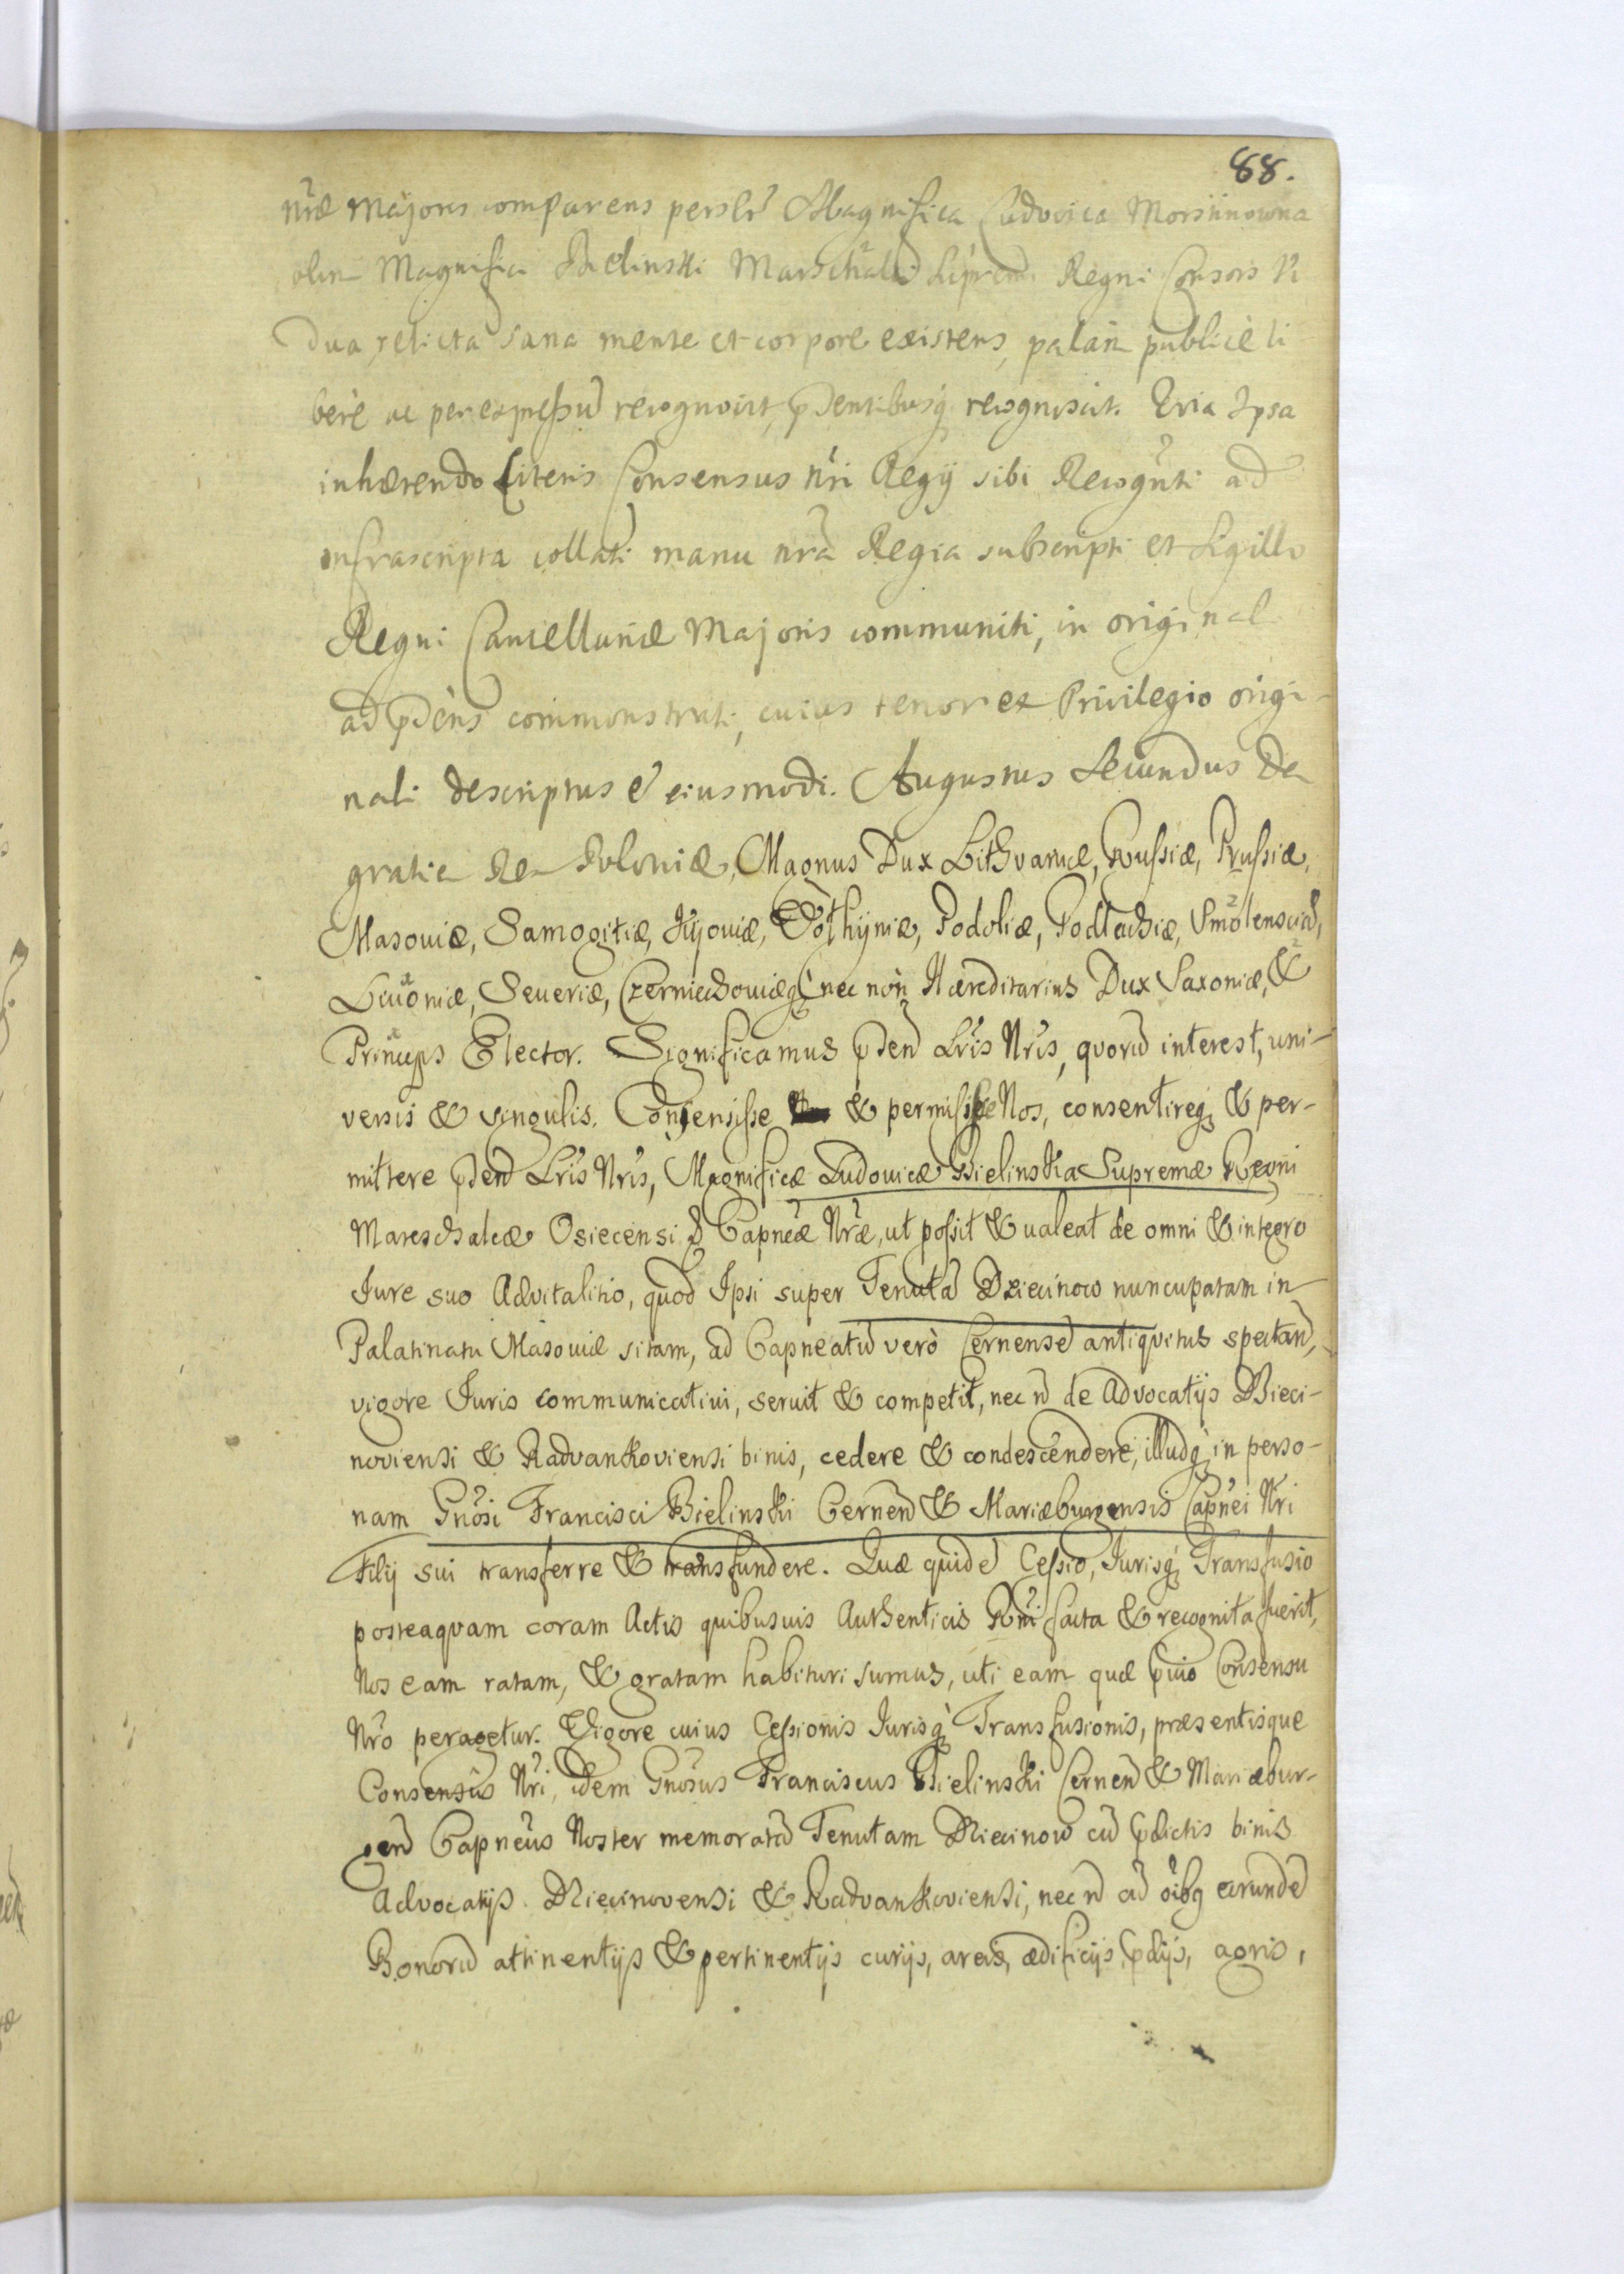 88.
nr̃æ Majoris comparens perslr̃ Magnifica Ludovica Morstinowna
olim Magnifici Bielinski Marschalci Suprem Regni Consors Vi
dua relicta sana mente et corpore existens, palam publicè li
berè ac per expressũ recognovit, p̃dentibusq̃ recognoscit. Quia Ipsa
inhærendo Literis Consensus nr̃i Regij sibi Recogn̄ti ad
infrascripta collati manu nr̃a Regia subscripti et Sigillo
Regni Cancellariæ Majoris communiti, in original
ad p̃dens commonstrati, cuius tenor ex Privilegio origi-
nali descriptus ẽ eiusmodi. Augustus Secundus De
gratia Rex Poloniæ, Magnus Dux Lithvaniæ, Russiæ, Prussiæ,
Masoviæ, Samogitiæ, Kijoviæ, Volhyniæ, Podoliæ, Podlachiæ, Smolensciæ,
Livoniæ, Severiæ, Czerniechoviæq̃ nec non Hæreditarius Dux Saxoniæ, &
Princeps Elector. Significamus p̃den Lr̃is Nr̃is, quorũ interest, uni-
versis & singulis. Consensisse & permisisse Nos, consentireq̃ & per-
mittere p̃den Lr̃is Nr̃is, Magnificæ Ludovicæ Bielinska Supremæ Regni
Mareschalcæ Osiecensi Capneæ Nr̃æ, ut possit & valeat de omni & integro
Jure suo Advitalitio, quod Ipsi super Tenutã Dziecinow nuncupatam in
Palatinatu Masoviæ sitam, ad Capneatũ verò Cernensẽ antiquitus spectan̄,
vigore Juris communicativi, servit & competit, nec n̄ de Advocatijs Dzieci-
noviensi & Radvankoviensi binis, cedere & condescendere, illudq̃ in perso-
nam Gnõsi Francisci Bielinski Cernen̄ & Mariæburgensis Capnei Nr̃i
Filij sui transferre & transfundere. Quæ quidẽ Cessio, Jurisq̃ Transfusio
posteaqvam coram Actis quibusvis Authenticis Rñi facta & recognita fuerit,
Nos eam ratam, & gratam habituri sumus, uti eam quæ p̃vio Consensu
Nr̃o peragetur. Vigore cuius Cessionis Jurisq̃ Transfusionis, præsentisque
Consensûs Nr̃i, idem Gnõsus Franciscus Bielinski Cernen̄ & Mariæbur-
gen̄ Capneus Noster memoratã Tenutam Dziecinow cũ p̃dictis binis
Advocatijs Dziecinovensi & Radvankoviensi, nec n̄ cũ õibq̃ earundẽ
Bonorũ attinentijs & pertinentijs curijs, areis, ædificijs, p̃dijs, agris,